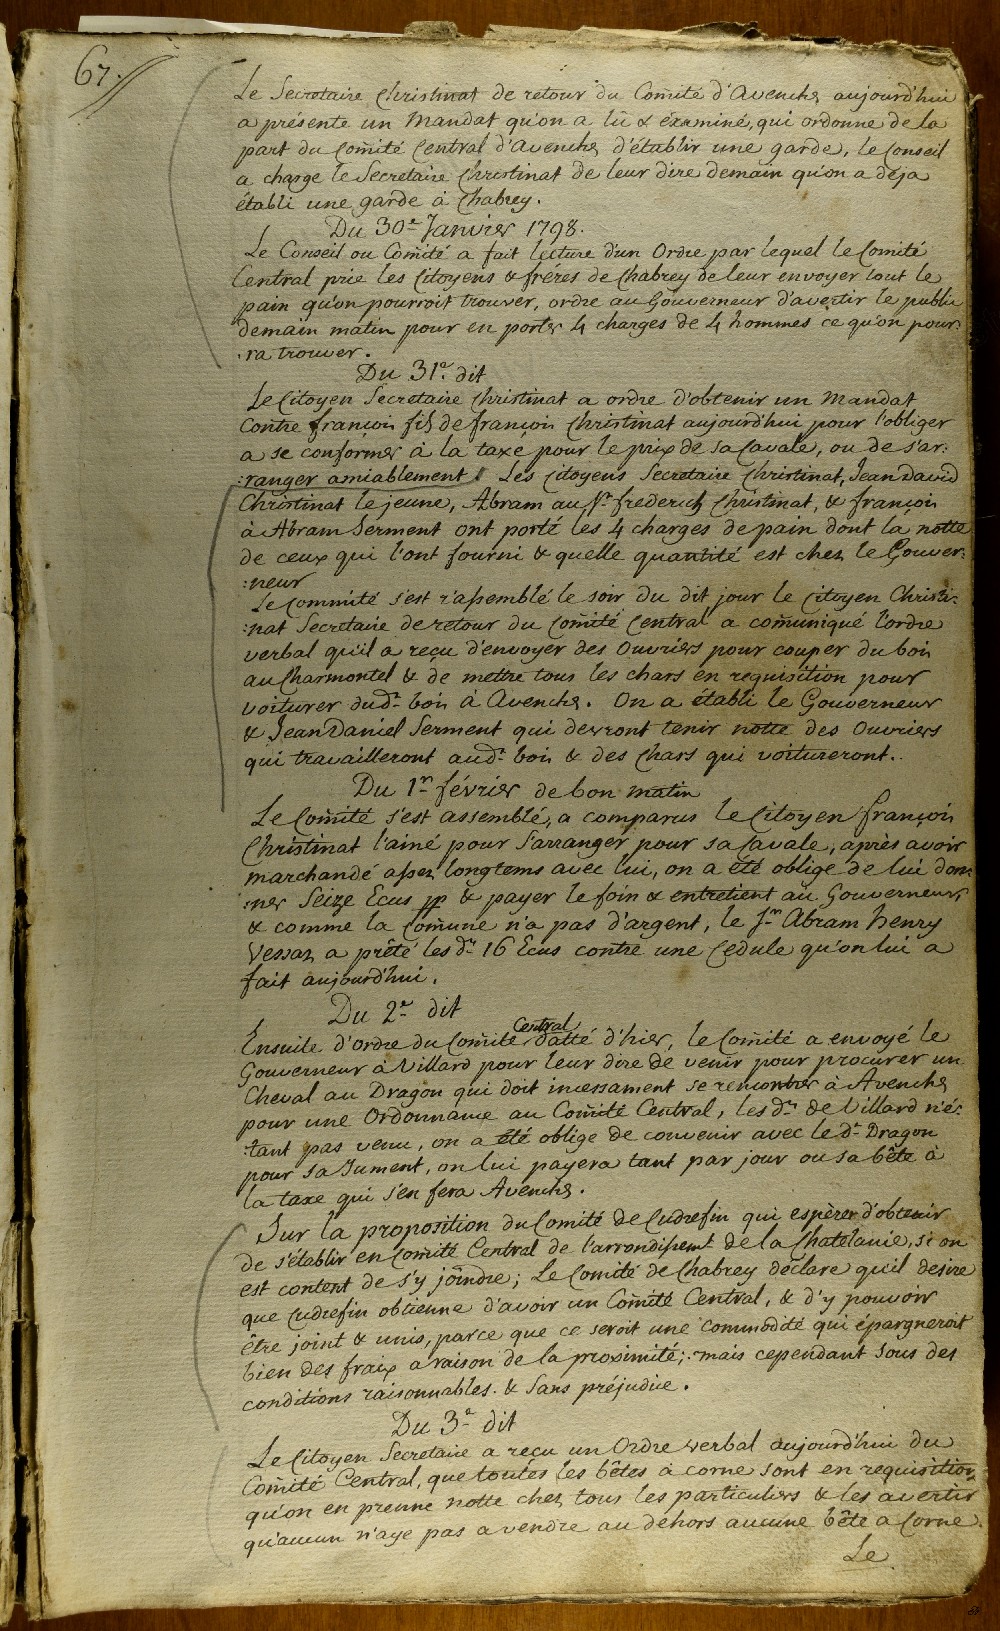 67.
Le Secretaire Christinat de retour du Comité d'Avenches aujourd'hui
a présenté un Mandat qu'on a lû & examiné, qui ordonne de la
part du Comité Central d'Avenches d'établir une garde, le Conseil
a chargé le Secretaire Christinat de leur dire demain qu'on a déja
établi une garde à Chabrey.
Du 30e Janvier 1798.
Le Conseil ou Comité a fait lecture d'un Ordre par lequel le Comité
Central prie les Citoyens & fréres de Chabrey de leur envoyer tout le
pain qu'on pourroit trouver, ordre au Gouverneur d'avertir le public
demain matin pour en porter 4 charges de 4 hommes ce qu'on pour:
:ra trouver.
Du 31e. dit
Le Citoyen Secretaire Christinat a ordre d'obtenir un Mandat
Contre françois fils de françois Christinat aujourd'hui pour l'obliger
a se conformer à la taxe pour le prix de sa Cavale, ou de s'ar:
:ranger amiablement. Les Citoyens Secretaire Christinat, Jean David
Christinat le jeune, Abram au Sr. frederich Christinat, & françois
à Abram Serment ont porté les 4 charges de pain dont la notte
de ceux qui l'ont fourni & quelle quantité est chez le Gouver:
:neur
Le Committé s'est r'assemblé le soir du dit jour le Citoyen Christi:
:nat Secretaire de retour du Comité Central a comuniqué l'ordre
verbal qu'il a reçu d'envoyer des Ouvriers pour couper du bois
au Charmontel & de mettre tous les chars en requisition pour
voiturer dud.t bois à Avenches. On a établi le Gouverneur
& Jean Daniel Serment qui devront tenir notte des Ouvriers
qui travailleront aud.t bois & des Chars qui voitureront.
Du 1er février de bon matin
Le Comité s'est assemblé, a comparus le Citoyen françois
Christinat l'ainé pour s'arranger pour sa Cavale, après avoir
marchandé assez longtems avec lui, on a été obligé de lui don
:ner Seize Ecus pp & payer le foin & entretient au Gouverneur,
& comme la Comune n'a pas d'argent, le Sr. Abram Henry
Vessaz a prêté les d.ts 16 Ecus contre une Cedule qu'on lui a
fait aujourd'hui.
Du 2e dit
Ensuite d'ordre du Comité Central datté d'hier, le Comité a envoyé le
Gouverneur à Villard pour leur dire de venir pour procurer un
Cheval au Dragon qui doit incessament se rencontrer à Avenches
pour une Ordonnance au Comité Central, les d.ts de Villard n'é:
:tant pas venu, on a été obligé de convenir avec le d.t Dragon
pour sa Jument, on lui payera tant par jour ou sa bête à
la taxe qui s'en fera Avenches.
Sur la proposition du Comité de Cudrefin qui espèrer d'obtenir
de s'établir en Comité Central de l'arrondissemt. de la Chatelanie, si on
est content de s'y joindre; Le Comité de Chabrey déclare qu'il desire
que Cudrefin obtienne d'avoir un Comité Central, & d'y pouvoir
être joint & unis, parce que ce seroit une commodité qui épargneroit
bien des fraix a raison de la proximité; mais cependant sous des
conditions raisonnables. & Sans préjudice.
Du 3e dit
Le Citoyen Secretaire a reçu un Ordre verbal aujourd'hui du
Comité Central, que toutes les bêtes à corne sont en requisition,
qu'on en prenne notte chez tous les particuliers & les avertir
qu'aucun n'aye pas a vendre au dehors aucune bête a Corne.
Le